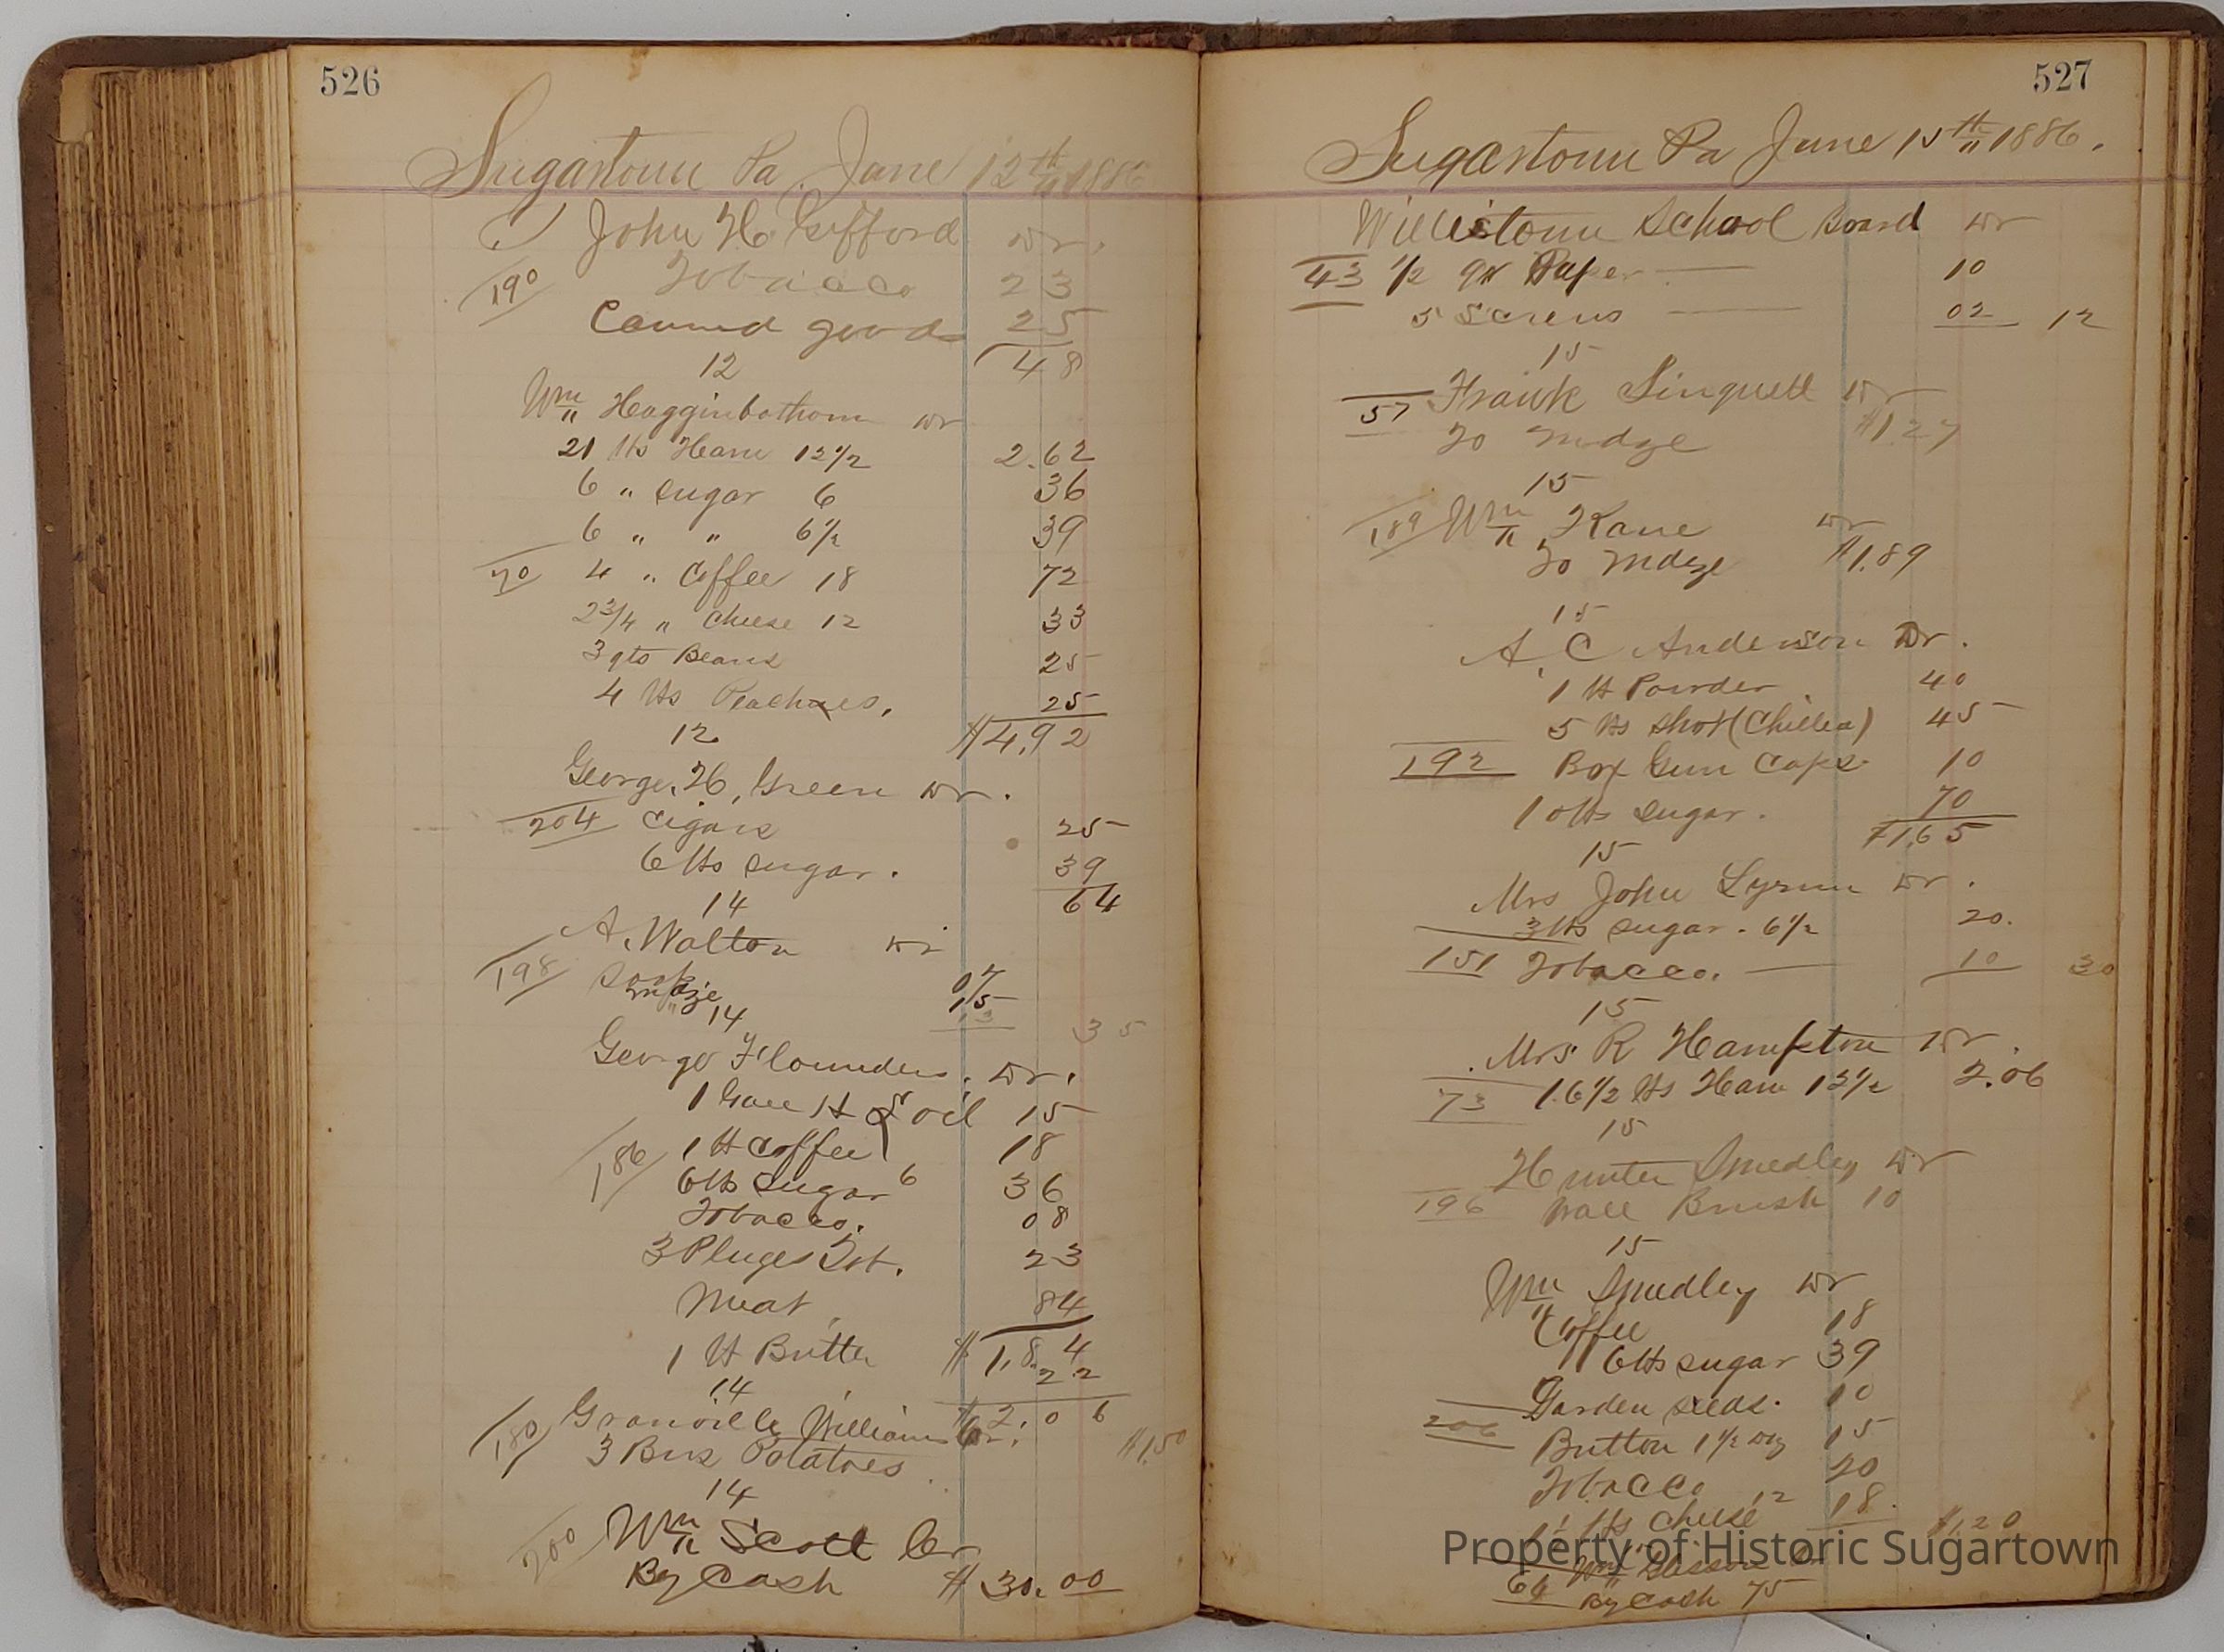 526
Sugartown Pa. June 12th 1886
John H. Gifford Dr.
190 Tobacco 23
Canned goods 25
48
12
Wm Hagginbothom Dr
21 lbs Ham 12 1/2 2.62
6 " sugar 6 36
6 " " 6 1/2 39
70 4 " Coffee 18 72
2 3/4 " Cheese 12 33
3 qts Beans 25
4 lbs Peaches, 25
12 $4,92
George, H, Green Dr.
204 Cigars 25
6 lbs sugar. 39
14 64
A. Walton Dr
198 07
Mdze 15
14 13 35
George Flounders. Dr.
1 Gall H L oil 15
186 1 lb Coffee 18
6 lbs Sugar 6 36
Tobacco. 08
3 Pluges Tob. 23
Meat 84
1 lb Butter $1,84
22
14 $2.06
180 Granville Williams Dr. $1.50
3 Bus Potatoes
14
200 Wm Scott Cr
By Cash $30.00
527
Sugartown Pa June 15th 1886.
Willistown School Board Dr
43 1/2 qr Paper 10
5 Screws 02 12
15
57 Frank Singuell Dr
To Mdze $1.27
15
189 Wm Kane Dr
To Mdze $1.89
15
A. C Anderson Dr.
1 lb Powder 40
5 lbs shot (Chilled) 45
192 Box Gun Caps 10
10 lbs sugar. 70
15 $1,65
Mrs John Lynn Dr.
3 lbs sugar. 6 1/2 20.
151 Tobacco. 10 30
15
Mrs R Hampton Dr.
73 16 1/2 lbs Ham 12 1/2 2.06
15
Hunter Smedley Dr
196 Wall Brush 10
15
Wm Smedley Dr
Coffee 18
6 lbs sugar 39
Garden seeds. 10
206 Button 1 1/2 Doz 15
Tobacco 20
lbs Cheese 12 18. $1.20
64 Wm
By Cash 75
Property of Historic Sugartown